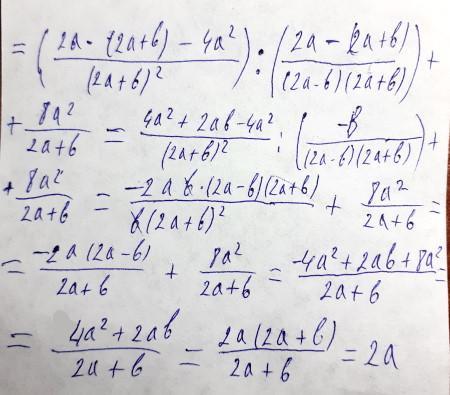 = (2a · (2a+b) − 4a² / (2a+b)²) : (2a − (2a+b) / (2a-b)(2a+b)) +
+ 8a² / 2a+b = 4a² + 2ab − 4a² / (2a+b)² : (−b / (2a-b)(2a+b)) +
+ 8a² / 2a+b = −2ab·(2a-b)(2a+b) / b(2a+b)² + 8a² / 2a+b =
= −2a(2a-b) / 2a+b + 8a² / 2a+b = −4a² + 2ab + 8a² / 2a+b =
= 4a² + 2ab / 2a+b = 2a(2a+b) / 2a+b = 2a